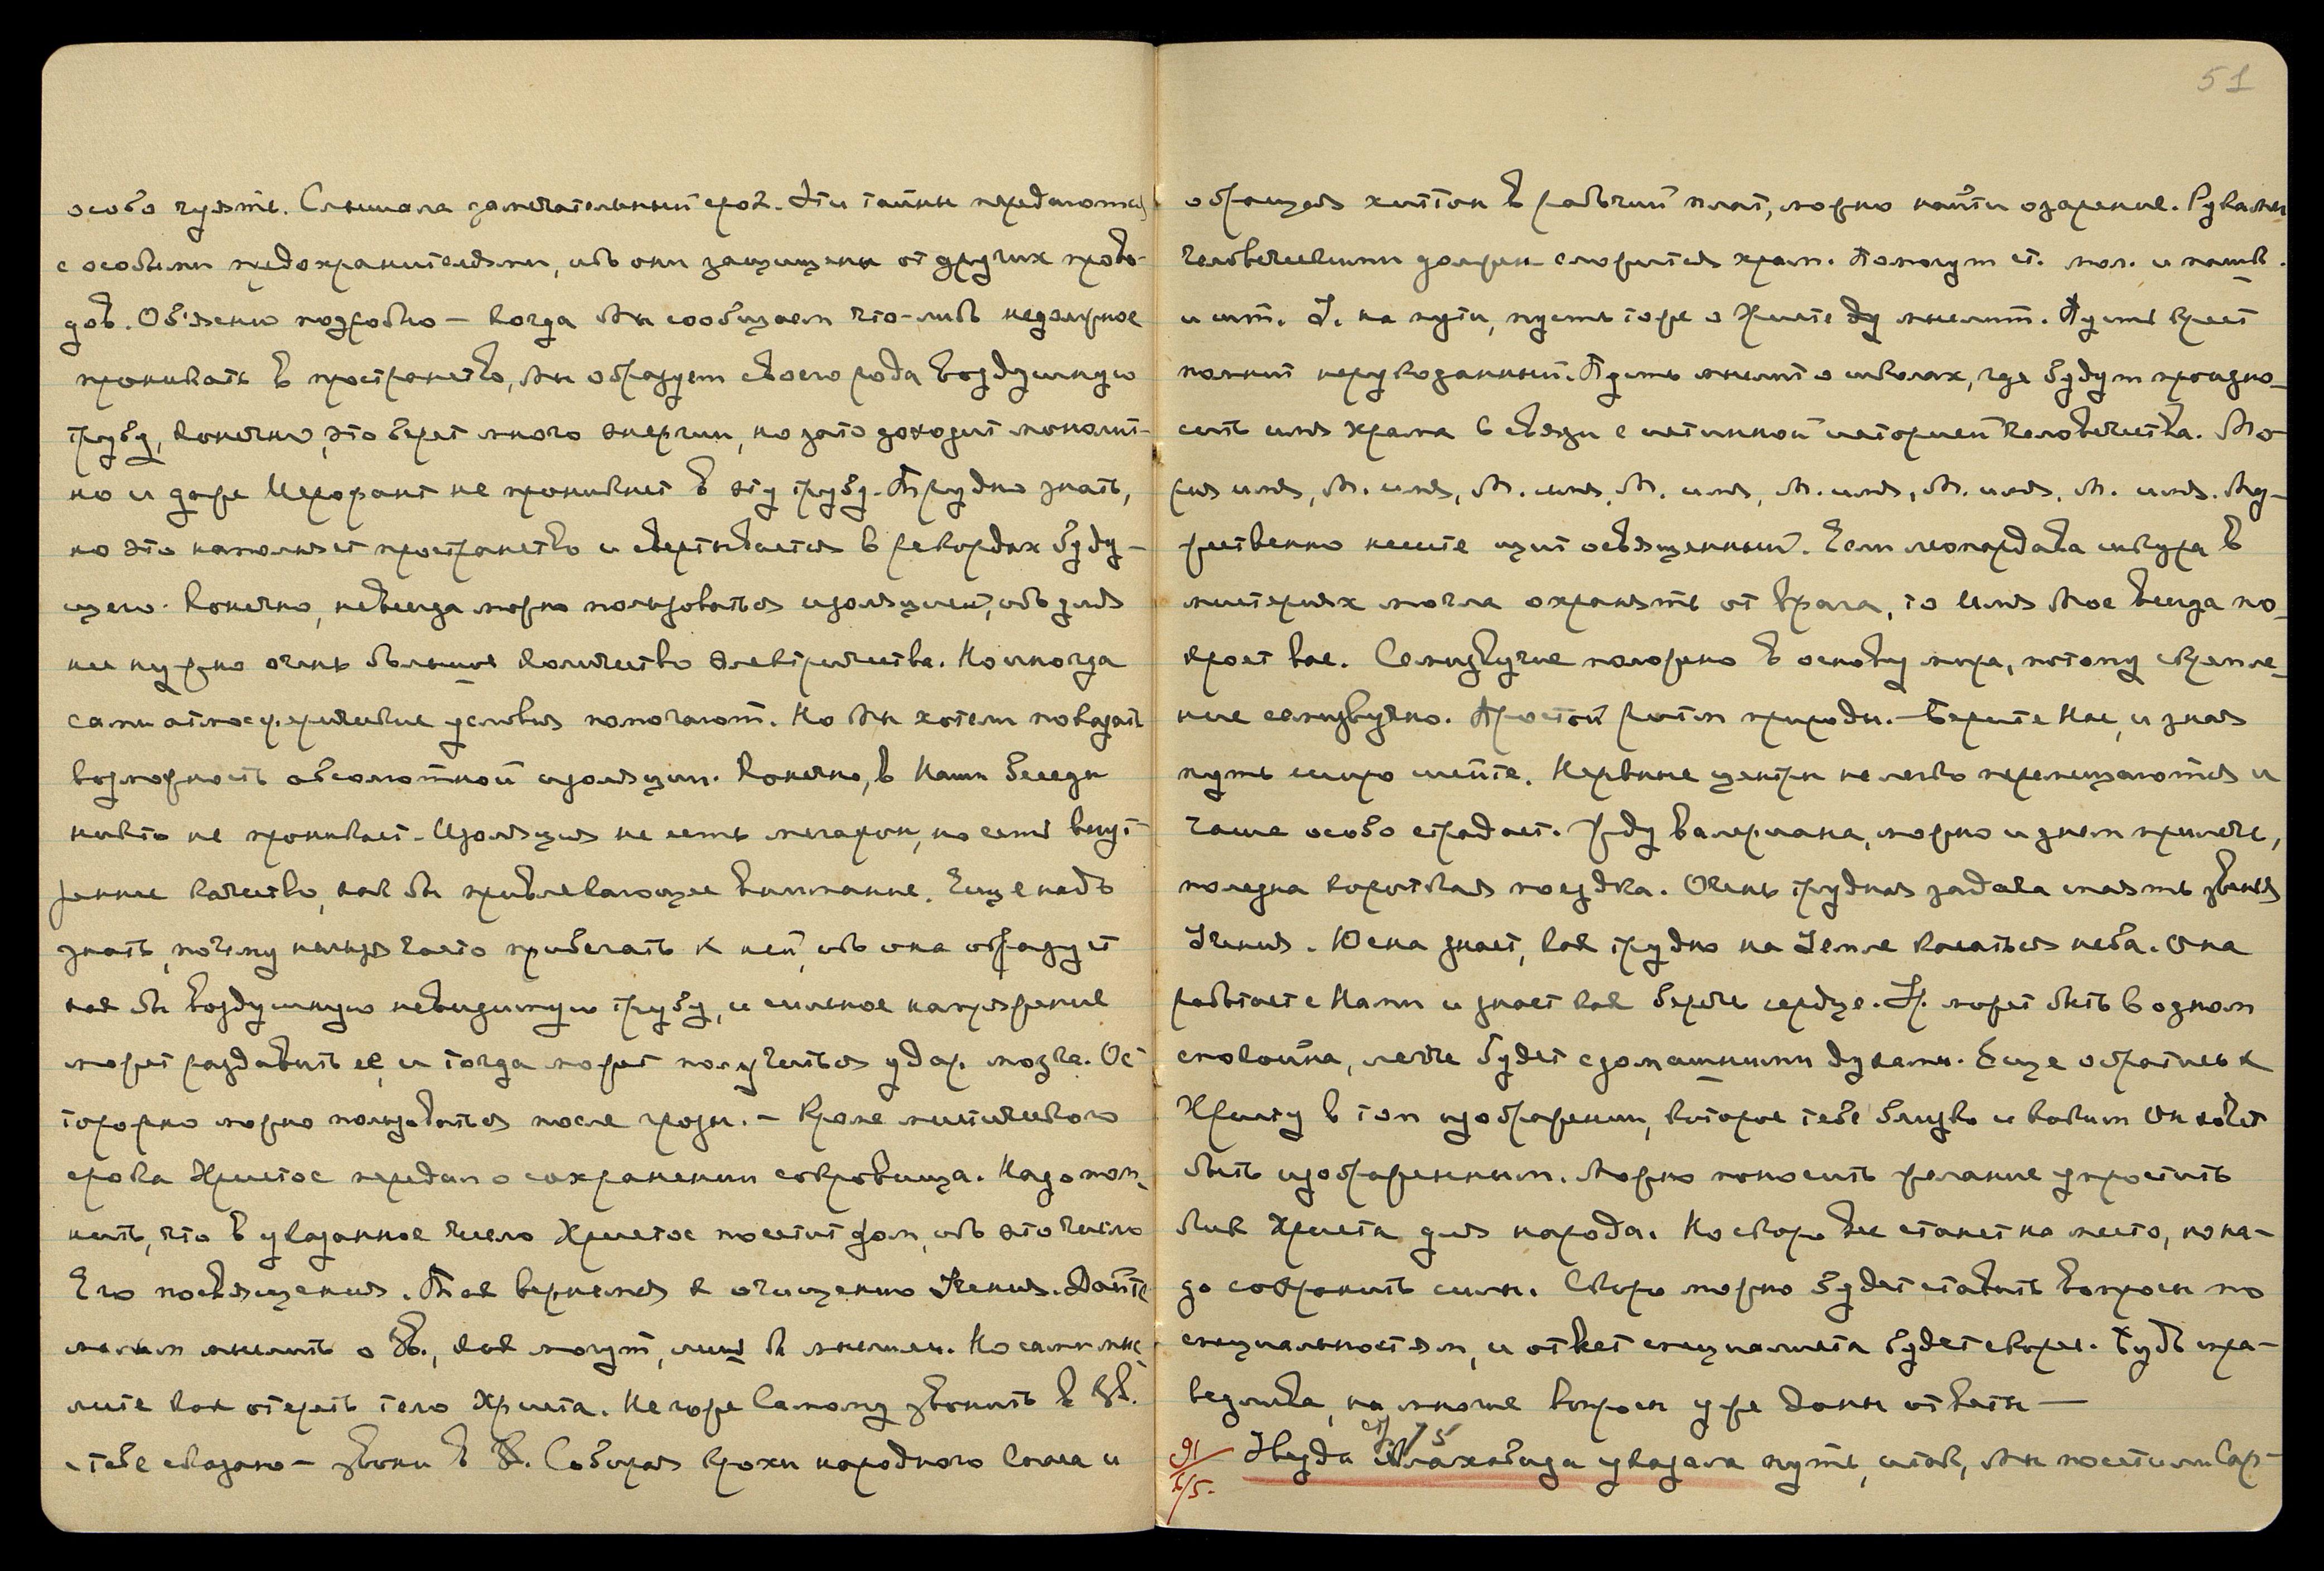 особо чуять. Слышала замечательный срок. Эти тайны передаются
с особыми предохранителями, ибо они защищены от других прово-
дов. Об'ясню подробно — когда Мы сообщаем что-либо недолжное
проникать в пространство, Мы образуем своего рода воздушную
трубу, конечно, это берет много энергии, но зато доходит монолит-
но и даже Иерофант не проникнет в эту трубу. Трудно знать,
но это наполняет пространство и свертывается в рекордах буду-
щего. Конечно, не всегда можно пользоваться изоляцией, ибо для
нее нужно очень большое количество электричества. Но иногда
сами атмосферические условия помогают. Но Мы хотели показать
возможность абсолютной изоляции. Конечно, в Наши беседы
никто не проникает. Изоляция не есть мегафон, но есть внут-
реннее качество, как бы привлекающее внимание. Еще надо
знать, почему нельзя часто прибегать к ней, ибо она образует
как бы воздушную невидимую трубу, и сильное напряжение
может раздавить ее, и тогда может получиться удар мозга. Ос-
торожно можно пользоваться после грозы. — Кроме мистического
срока Христос передал о сохранении сокровища. Надо пом-
нить, что в указанное число Христос посетит дом, ибо это число
Его посвящения. Так вернемся к очищению Учения. Дайте
малым мыслить о Зв., как могут, лишь б мыслили. Но сами мыс-
лите как отереть тело Христа. Не горе Самому звонить в Зв.
и тебе сказано — звони в Зв. Собирая крохи народного блага и
51
обращая хитон в рабочий плат, можно найти озарение. Руками
человеческими должен сложиться храм. Помогут ст. мол. и
и шт. У. на пути, пусть тоже о Христе мыслит. Пусть крест
помнит нерукозданный. Пусть мыслит о школах, где будут произно-
сить имя храма в связи с истинной историей человечества. Мо-
рия имя, М. имя, М. имя, М. имя, М. имя, М. имя, М. имя. Му-
жественно несите щит освященный. Если леопардова шкура в
мистериях могла охранять от врага, то Имя Мое всегда по-
кроет вас. Семизвучие положено в основу мира, потому скрепле-
ние семизвучно. Простой ритм природы. — Берите Нас, и зная
путь скоро идите. Нервные центры нелегко перемещаются и
чаша особо страдает. Жду валериана, можно и днем прилечь,
полезна короткая поездка. Очень трудная задача спаять звенья
Учения. Юсна знает, как трудно на Земле касаться неба. Она
работает с Нами и знает как беречь сердце. Н. может быть в одном
спокойна, легче будет с домашними духами. Еще обратись к
Христу в том изображении, которое тебе близко и каким Он хочет
быть изображенным. Можно поносить желание упростить
лик Христа для народа. Но скоро все станет на место, но на-
до сохранить силы. Скоро можно будет ставить вопросы по
специальностям, и ответ специалиста будет скорее. Будь спра-
ведлива, на многие вопросы уже даны ответы —
91
6/5.
стр 75
Звезда Аллахабада указала путь, итак, Мы посетили Сар-